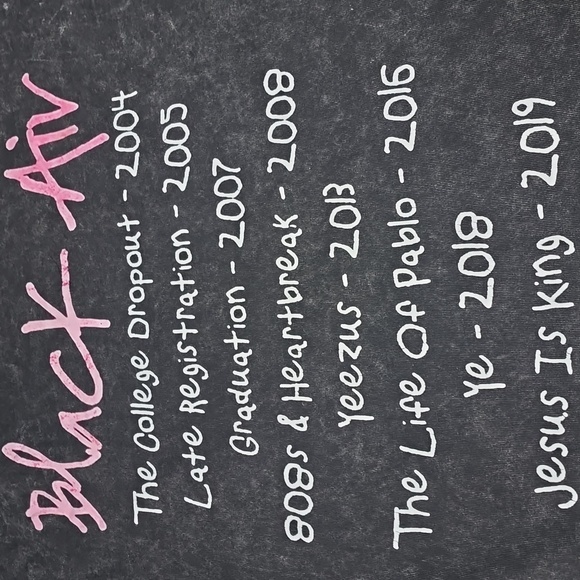 Black Air
The College Dropout - 2004
Late Registration - 2005
Graduation - 2007
808s & Heartbreak - 2008
Yeezus - 2013
The Life Of Pablo - 2016
Ye - 2018
Jesus Is King - 2019